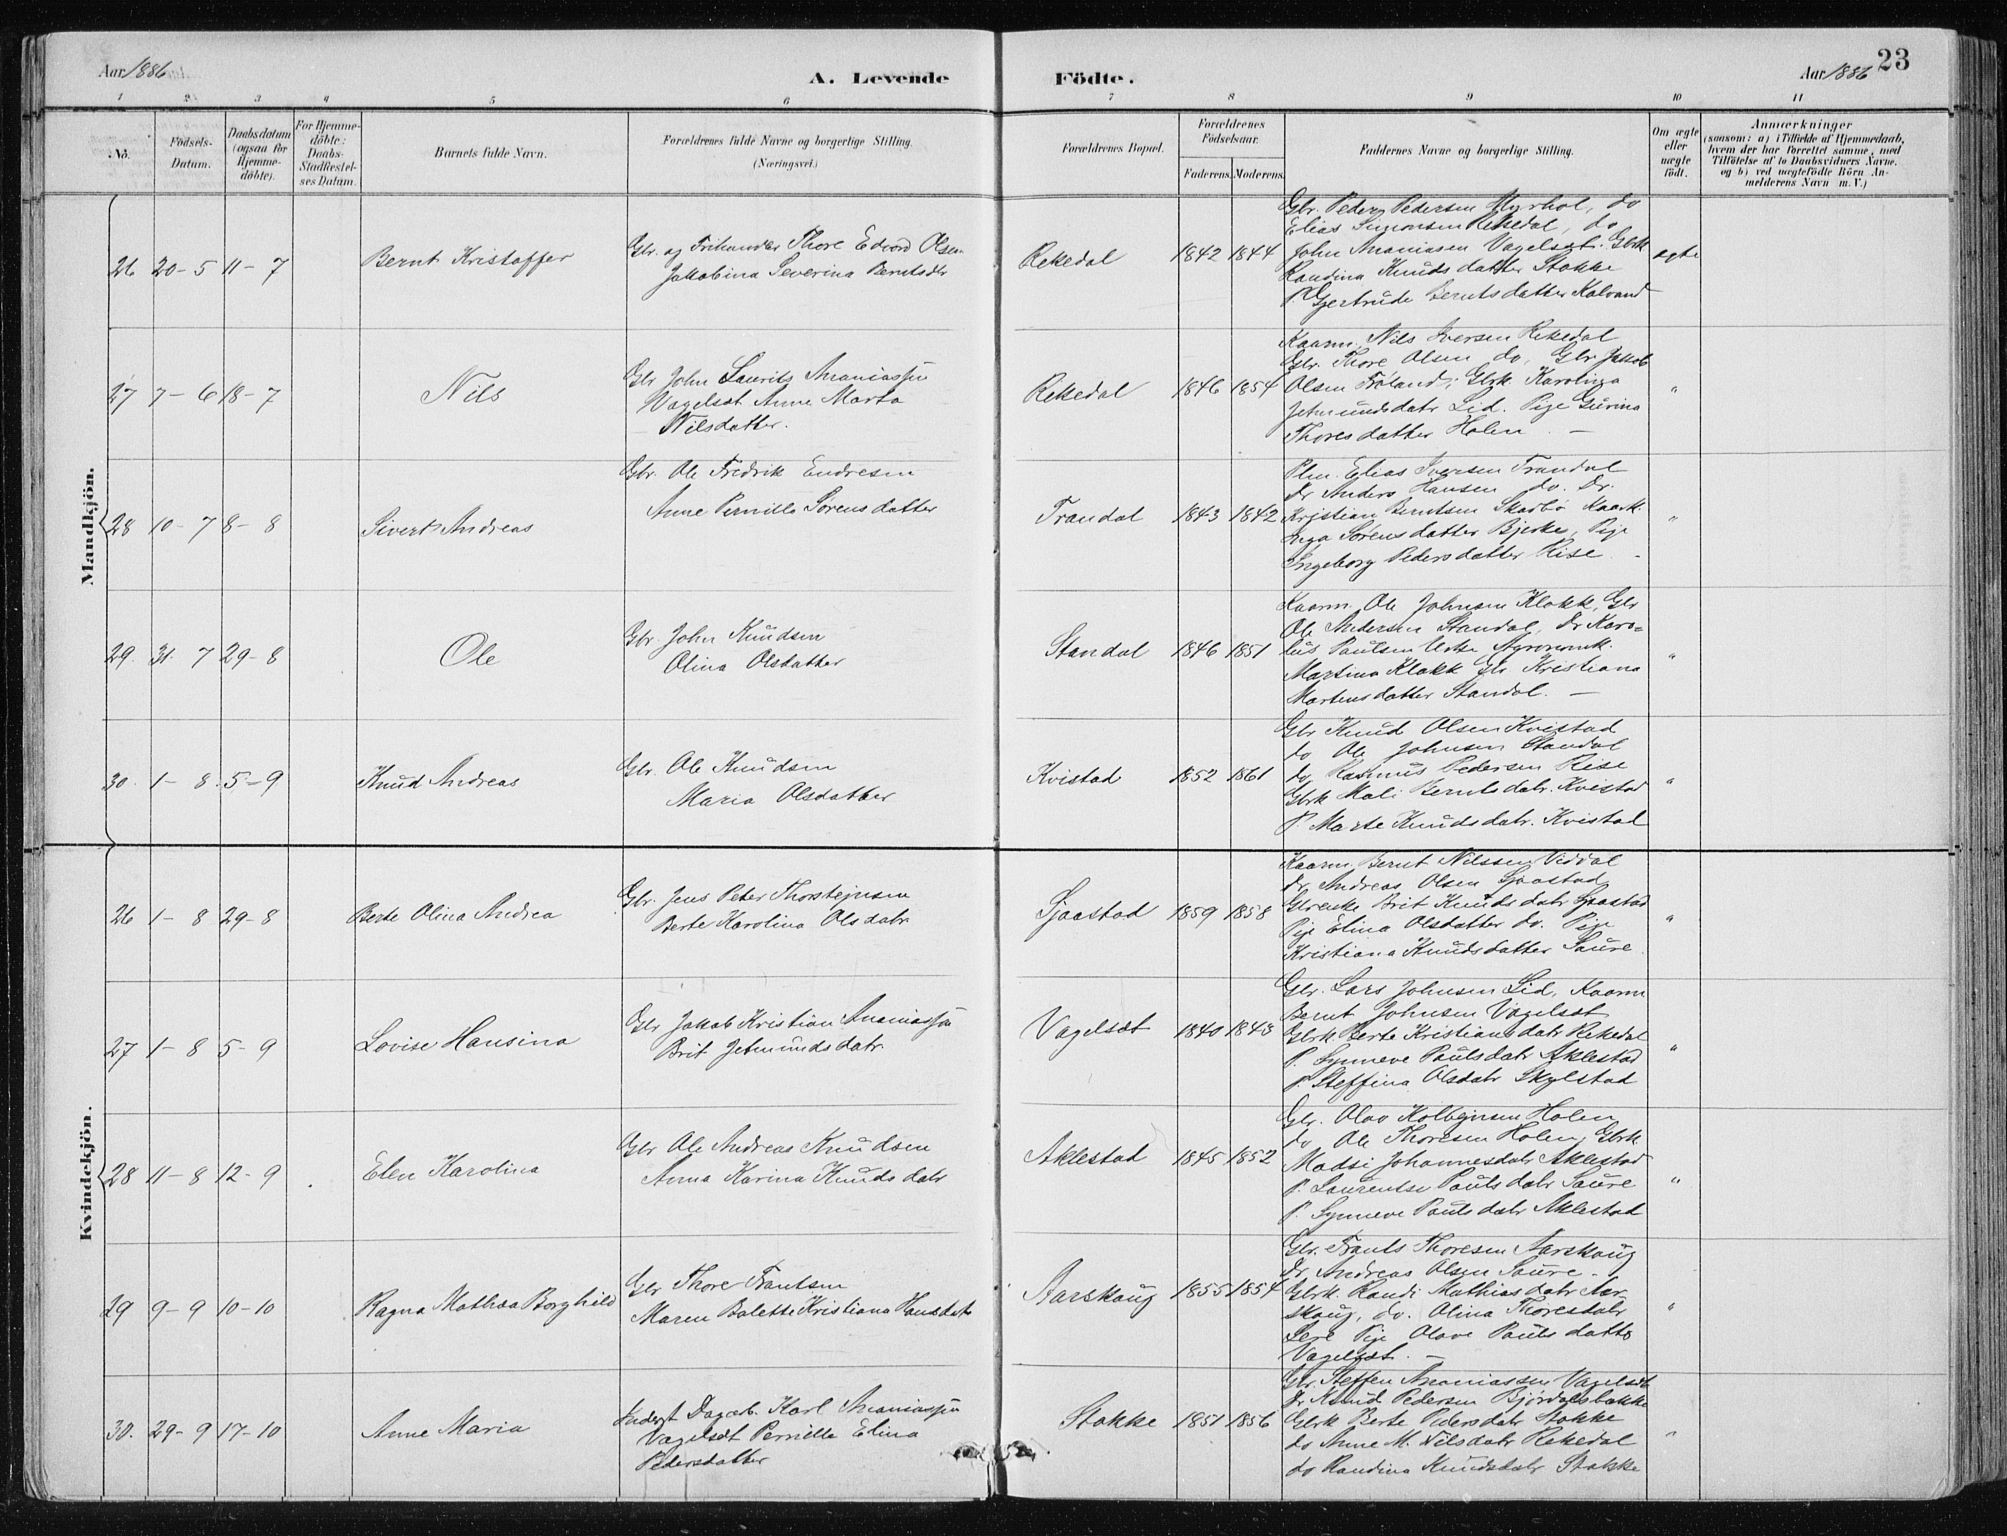 Aar 1886
A. Levende
Födte.
Aar 1886
23
1 2 3 4 5 6 7 8 9 10 11
No.
Födsels-Datum.
Daabsdatum (ogsaa for Hjemme-döbte).
For Hjemme-döbte: Daabs-Stadfæstel-ses Datum.
Barnets fulde Navn.
Forældrenes fulde Navne og borgerlige Stilling.
(Næringsvei.)
Forældrenes Bopæl.
Forældrenes Födselsaar.
Faderens. Moderens.
Faddernes Navne og borgerlige Stilling.
Om ægte eller uægte födt.
Anmærkninger
(saasom: a) i Tilfælde af Hjemmedaab,
hvem der har forrettet samme, med
Tilföielse af to Daabsvidners Navne.
og b) ved uægtefödte Börn An-
melderens Navn m. V.)
Mandkjön.
26 20-5 11-7
Bernt Kristoffer
Gbr. og Frihandler Thore Edvard Olsen
Jakobina Severina Berntsdtr
Rekedal
1842 1844
Gbr. Peder Pedersen Myrhol, do
Elias Simonsen Rekedal, do
John Ananiasen Vagelsæt. Gbrk
Randina Knudsdatter Stokke
P. Gjertrude Berntsdatter Kalvand
ægte
27 7-6 18-7
Nils
Gbr John Laurits Ananiassen
Vagelsæt Anne Marta
Nilsdatter.
Rekedal
1846 1854
Kaarm. Nils Iversen Rekedal
Gbr. Thore Olsen do, Gbr Jakob
Olsen Frøland, Gbrk Karolina
Jetmundsdatr Lid. Pige Gurina
Thoresdatter Holen. —
"
28 10-7 8-8
Sivert Andreas
Gbr. Ole Fredrik Endresen
Anne Pernille Sørensdatter
Trandal
1843 1842
Elias Iversen Trandal
Dr Anders Hansen do. Dr.
Kristian Berntsen Skarbø Kaark.
Inga Sørensdatter Bjerke, Pige
Ingeborg Pedersdatter Rise.
"
29. 31. 7 29-8
Ole
Gbr. John Knudsen
Olina Olsdatter
Standal
1846 1851
Kaarm. Ole Johnsen Klokk, Gbr
Ole Andersen Standal, Dr Karo-
lus Paulsen Urke Agronomk.
Martina Klokk Gbr Kristiana
Martensdatter Standal. —
"
30. 1-8 5-9
Knud Andreas
Gbr. Ole Knudsen
Maria Olsdatter
Kvistad
1852 1861
Gbr Knud Olsen Kvistad
do Ole Johnsen Standal
do Rasmus Pedersen Rise
Gbrk Mali Berntsdatr. Kvistad
P. Marte Knudsdatr. Kvistad
"
Kvindekjön.
26 1-8 29-8
Berte Olina Andrea
Gbr. Jens Peter Thorstejnsen
Berte Karolina Olsdatr
Sjaastad
1859 1858
Kaarm. Bernt Nilssen Viddal
Dr. Andreas Olsen Sjaastad
Gbrenke Brit Knudsdatr Sjaastad
Pige Elina Olsdatter do. Pige
Kristiana Knudsdatter Saure.
"
27 1-8 5-9
Lovise Hansina
Gbr Jakob Kristian Ananiassen
Brit Jetmundsdatr
Vagelsæt
1840 1843
Gbr. Lars Johnsen Lid, Kaarm
Bernt Johnsen Vagelsæt
Gbrk Berte Kristiansdatr Rekedal
P. Synneve Paulsdatr Aklestad
P. Steffina Olsdatr Skylstad
"
28 11-8 12-9
Elen Karolina
Gbr Ole Andreas Knudsen
Anna Karina Knudsdatr
Aklestad
1845 1852
Gbr. Olav Kolbejnsen Holen
do Ole Thoresen Holen, Gbrk
Madsi Johannesdatr Aklestad
P. Laurentse Paulsdatr Saure
P. Synneve Paulsdatr Aklestad
"
29 9-9 10-10
Ragna Mathea Borghild
Gbr Thore Frantsen
Maren Balette Kristiana Hansdatr
Aarskaug
1855 1854
Gbr. Frants Thoresen Aarskaug
Dr Andreas Olsen Saure.
Gbrk. Randi Mathiasdatr Aar-
skaug, do. Olina Thoresdatr
Pige Olave Paulsdatter
Vagelsæt. —
"
30. 29-9 17-10
Anne Maria
Inderst Dagarb. Karl Ananiassen
Vagelsæt Pernille Elina
Pedersdatter
Stokke
1851 1856
Gbr. Steffen Ananiassen Vagelsæt
Dr Knud Pedersen Bjørdalsbakke
Gbrk Berte Pedersdatr Stokke
do Anne M. Nilsdatr Rekedal
do Randina Knudsdatr Stokke
"